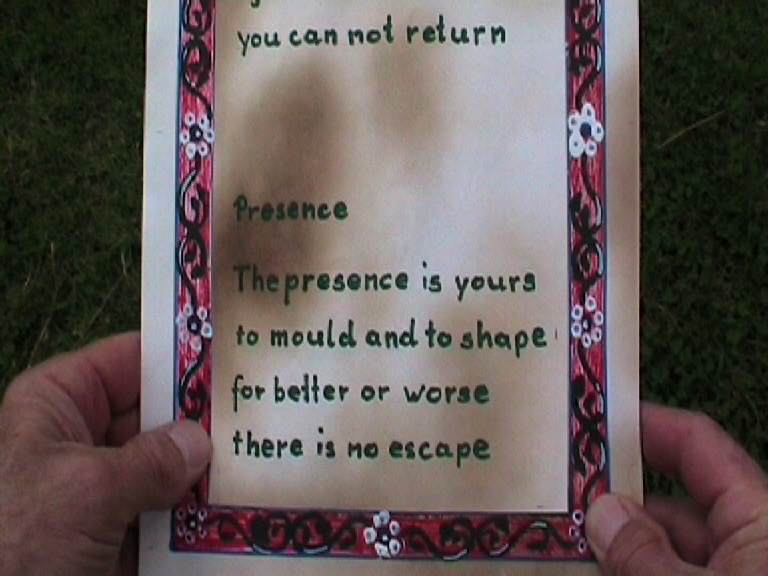 you can not return
Presence
The presence is yours
to mould and to shape
for better or worse
there is no escape